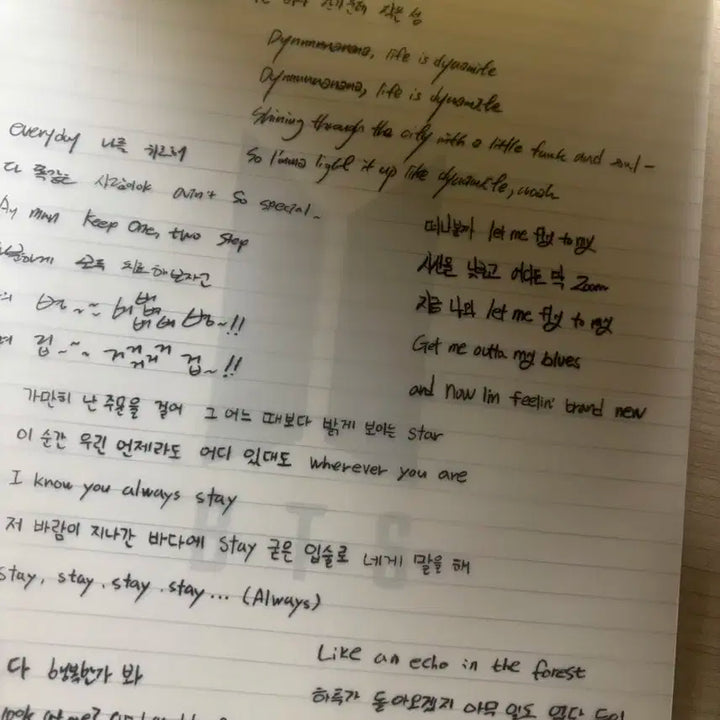 Dynnnnanana, life is dynamite
Dynnnnanana, life is dynamite
Shining through the city with a little funk and soul~
So I'mma light it up like dynamite, woah
everyday 나를
다 똑같은 사람이야 ain't so special~
Ay man Keep one, two step
모두 치료하자고
버~~ 버범
겁~~ 거거거거 겁~!!
떠나볼까 let me fly to my
시선을 낮추고 어디든 막 Zoom
지금 나의 let me fly to my
Get me outta my blues
and now I'm feelin' brand new
가만히 난 주문을 걸어 그 어느 때보다 밝게 보이는 star
이 순간 우린 언제라도 어디 있대도 wherever you are
I know you always stay
저 바람이 지나간 바다에 stay 굳은 입술로 네게 말을 해
stay, stay, stay, stay... (Always)
다 행복한가 봐
Like an echo in the forest
하루가 돌아오겠지 아무 일도 없단 듯이
BTS